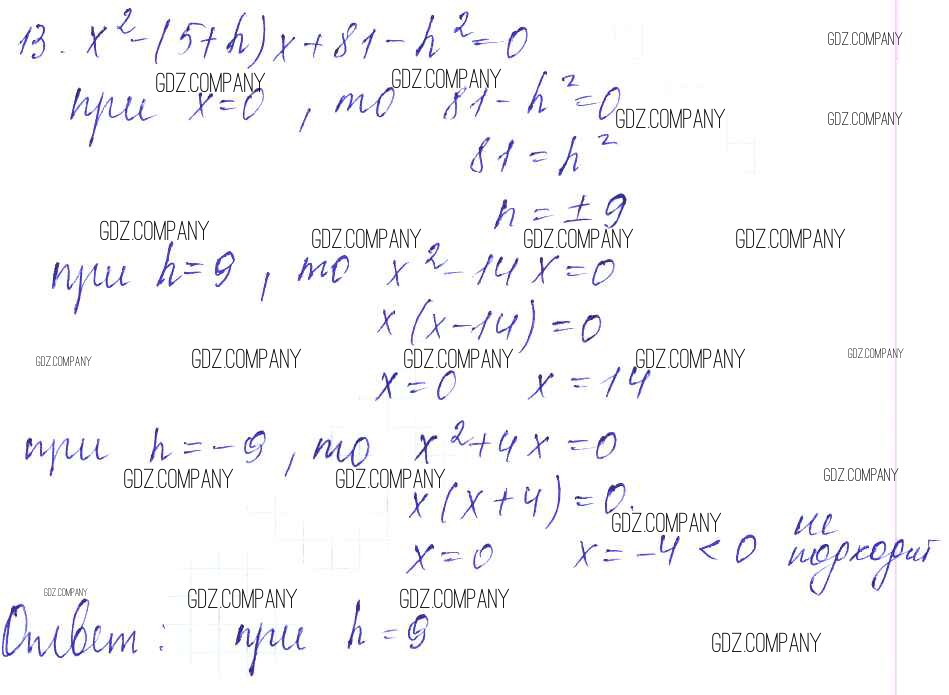 13. x²-(5+h)x+81-h²=0
GDZ.COMPANY
GDZ.COMPANY GDZ.COMPANY
при x=0, то 81-h²=0
GDZ.COMPANY GDZ.COMPANY
81=h²
h=±9
GDZ.COMPANY GDZ.COMPANY GDZ.COMPANY GDZ.COMPANY
при h=9, то x²-14x=0
x(x-14)=0
GDZ.COMPANY GDZ.COMPANY GDZ.COMPANY GDZ.COMPANY GDZ.COMPANY
x=0 x=14
при h=-9, то x²+4x=0
GDZ.COMPANY GDZ.COMPANY GDZ.COMPANY
x(x+4)=0.
GDZ.COMPANY
x=0 x=-4<0 не подходит
GDZ.COMPANY GDZ.COMPANY GDZ.COMPANY
Ответ: при h=9
GDZ.COMPANY